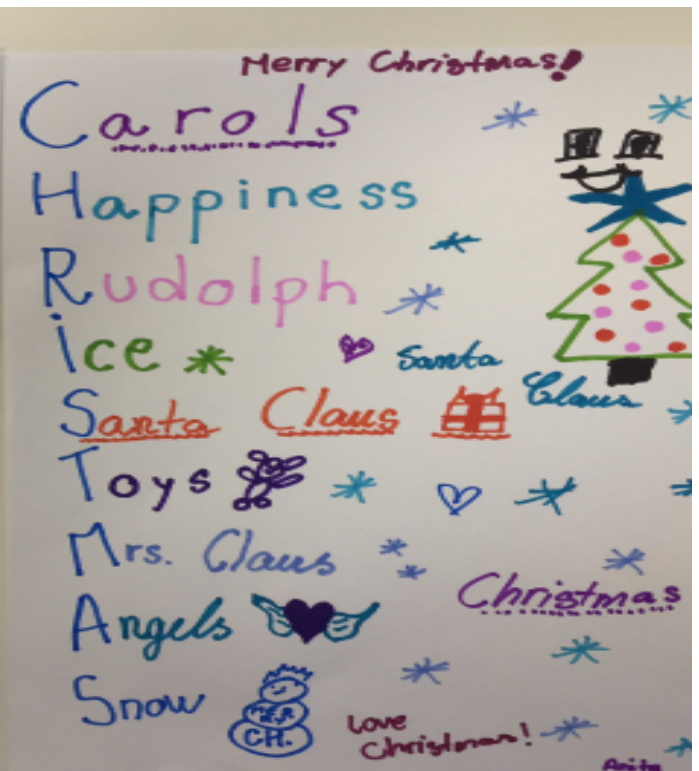 Merry Christmas!
Carols
Happiness
Rudolph
ice
Santa
Claus
Santa Claus
Toys
Mrs. Claus
Christmas
Angels
Snow
CH.
Love
Christmas!
Anita